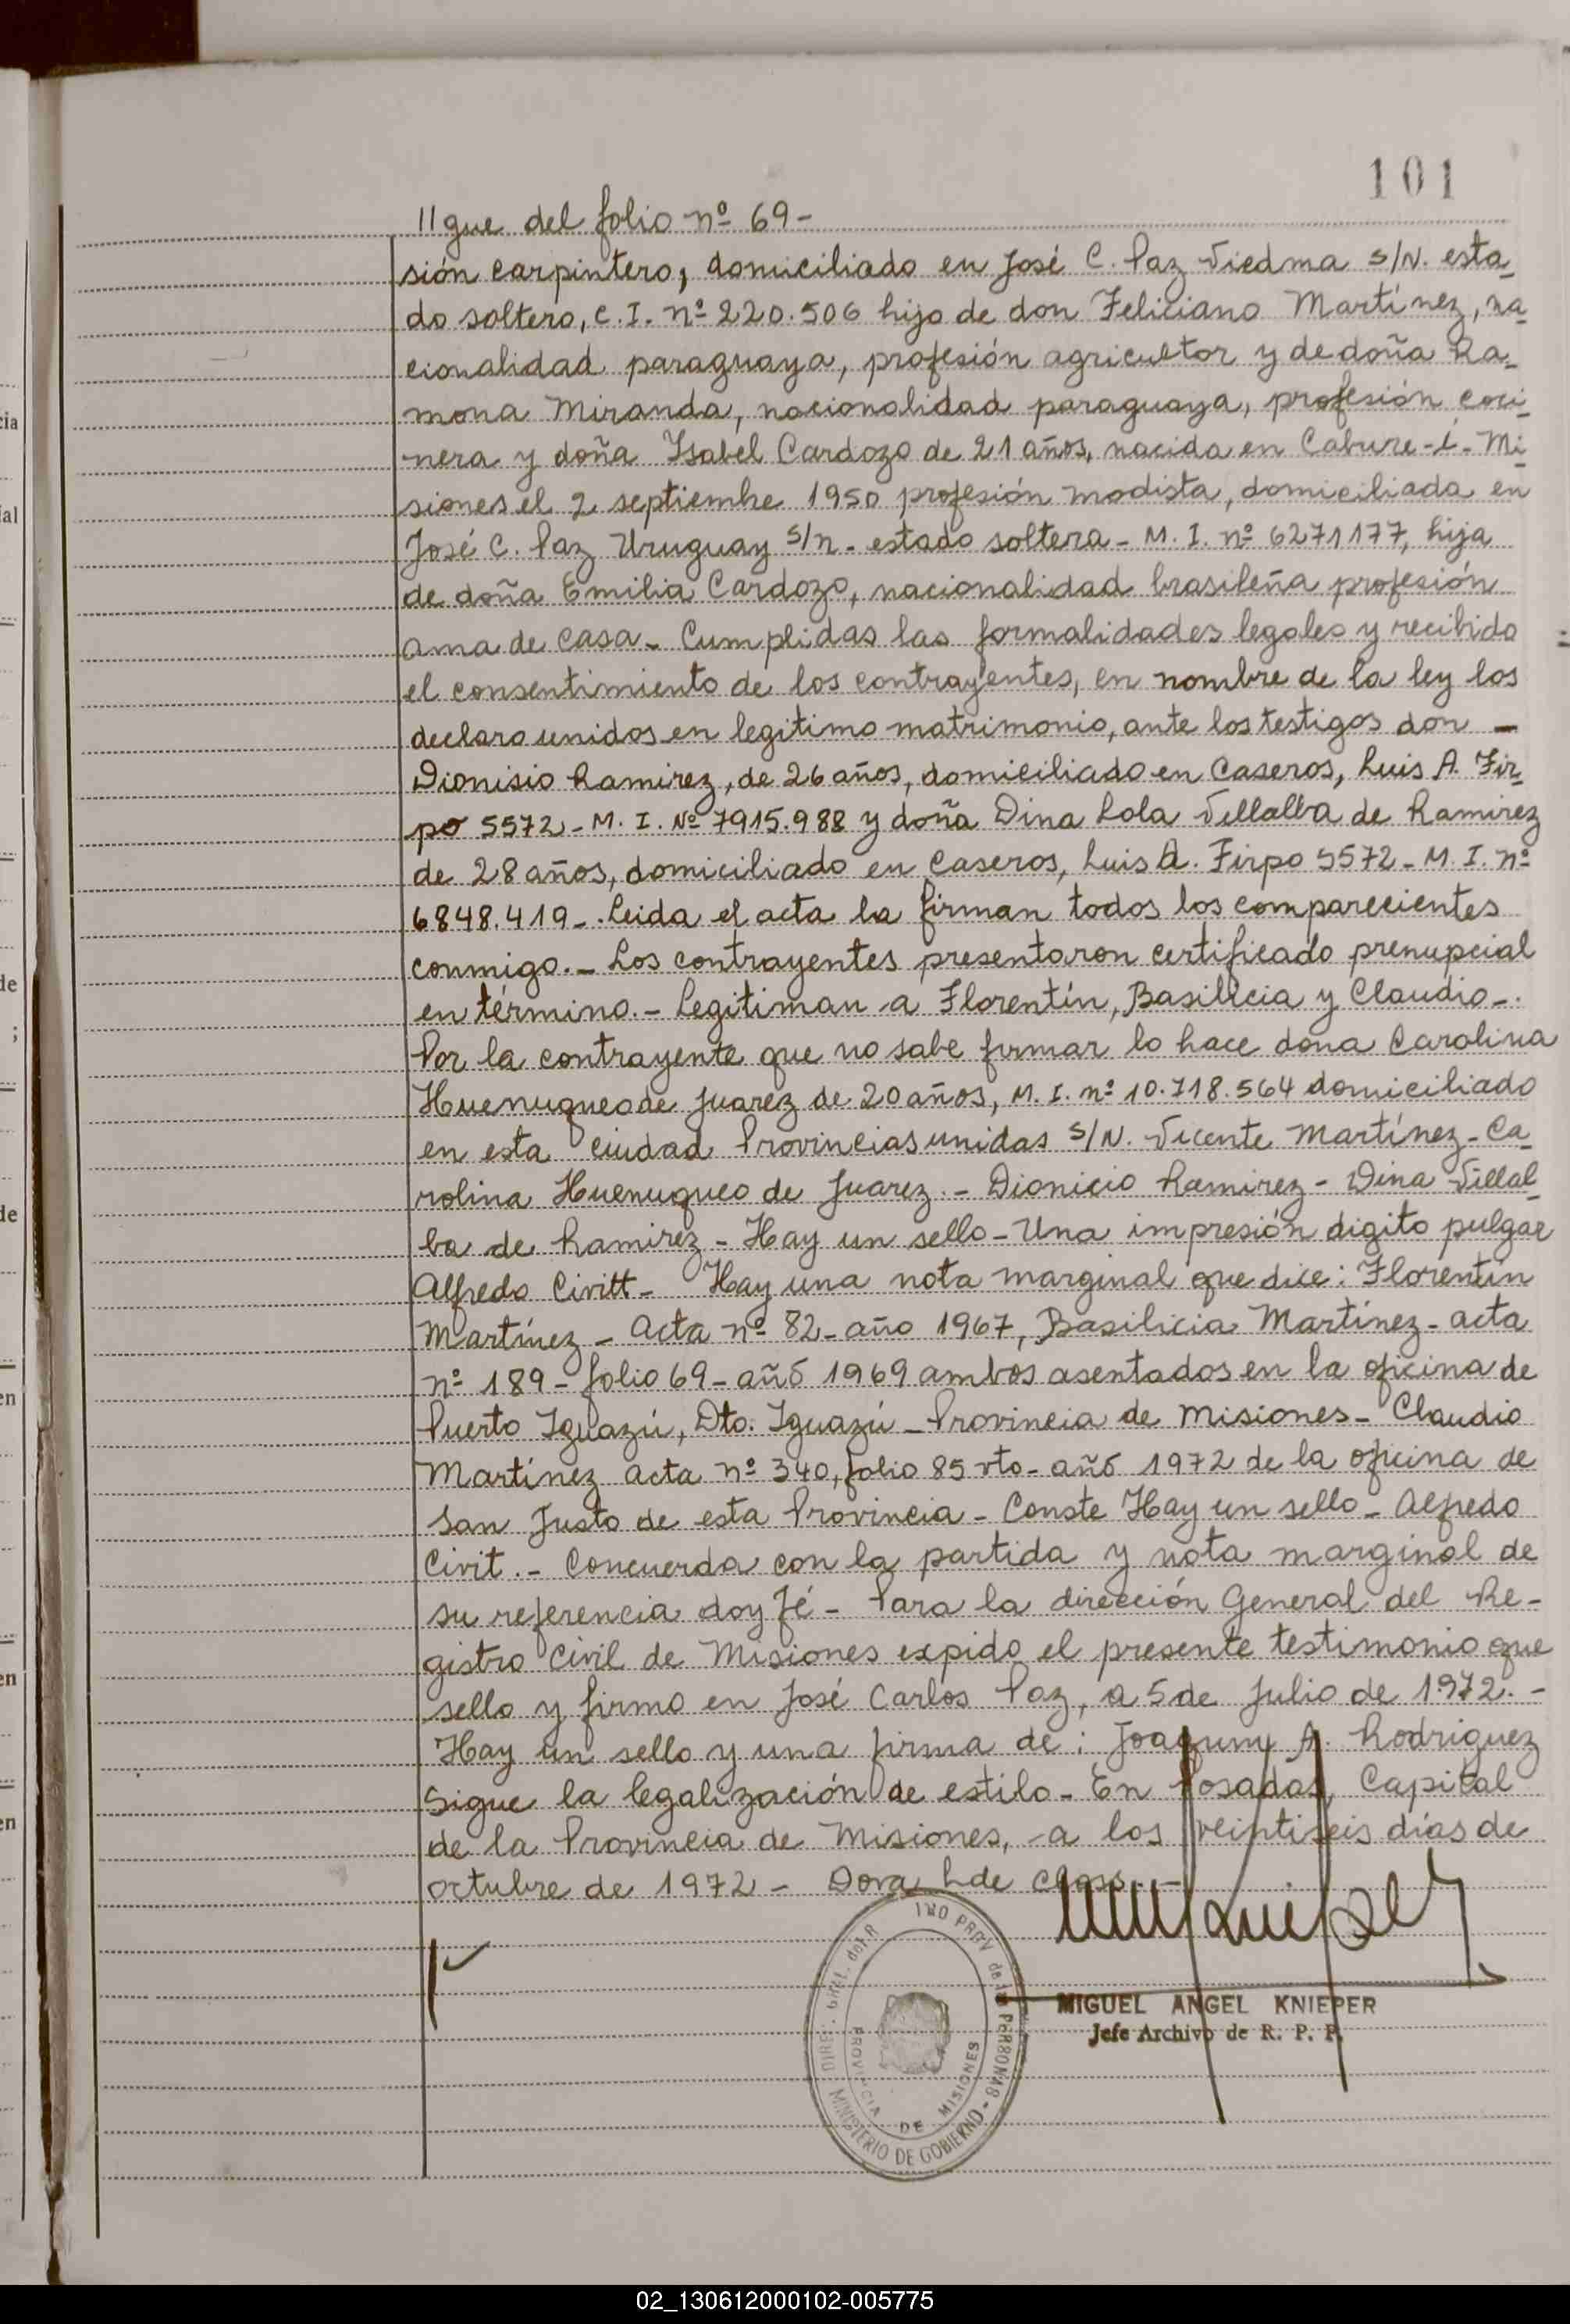 101
//gue del folio nº 69-
sión carpintero, domiciliado en José C. Paz Viedma S/N. esta-
do soltero, C. I. nº 220.506 hijo de don Feliciano Martínez, na-
cionalidad paraguaya, profesión agricultor y de doña Ra-
mona Miranda, nacionalidad paraguaya, profesión coci-
nera y doña Isabel Cardozo de 21 años, nacida en Cabure-í-Mi-
siones el 2 septiembre 1950 profesión modista, domiciliada en
José C. Paz Uruguay S/n - estado soltera - M. I. nº 6271177, hija
de doña Emilia Cardozo, nacionalidad brasileña profesión
ama de casa - Cumplidas las formalidades legales y recibido
el consentimiento de los contrayentes, en nombre de la ley los
declaro unidos en legitimo matrimonio, ante los testigos don -
Dionisio Ramirez, de 26 años, domiciliado en Caseros, Luis A. Fir-
po 5572 - M. I. Nº 7915.988 y doña Dina Lola Villalba de Ramirez
de 28 años, domiciliado en Caseros, Luis A. Firpo 5572 - M. I. nº
6848.419 -. Leida el acta la firman todos los comparecientes
conmigo. - Los contrayentes presentaron certificado prenupcial
en término. - Legitiman a Florentín, Basilicia y Claudio -.
Por la contrayente que no sabe firmar lo hace dona Carolina
Huenuqueo de Juarez de 20 años, M. I. nº 10.718.564 domiciliado
en esta ciudad Provincias unidas S/N. Vicente Martínez - Ca-
rolina Huenuqueo de Juarez. - Dionicio Ramirez - Dina Villal-
ba de Ramirez - Hay un sello - Una impresión digito pulgar
Alfredo Civitt - Hay una nota marginal que dice: Florentín
Martínez - acta nº 82 - año 1967, Basilicia Martínez - acta
nº 189 - folio 69 - año 1969 ambos asentados en la oficina de
Puerto Iguazú, Dto. Iguazú - Provincia de Misiones - Claudio
Martínez acta nº 340, folio 85 vto - año 1972 de la oficina de
San Justo de esta Provincia - Conste Hay un sello - Alfredo
Civit. - Concuerda con la partida y nota marginal de
su referencia doy fé - Para la dirección General del Re-
gistro Civil de Misiones expido el presente testimonio que
sello y firmo en José Carlos Paz, a 5 de Julio de 1972. -
Hay un sello y una firma de: Joaquiny A. Rodriguez
Sigue la legalización de estilo - En Posadas, Capital
de la Provincia de Misiones, a los veintiseis días de
octubre de 1972 - Dora L de
MIGUEL ANGEL KNIEPER
Jefe Archivo de R. P. P.
PROVINCIA DE MISIONES
MINISTERIO DE GOBIERNO -
02_130612000102-005775